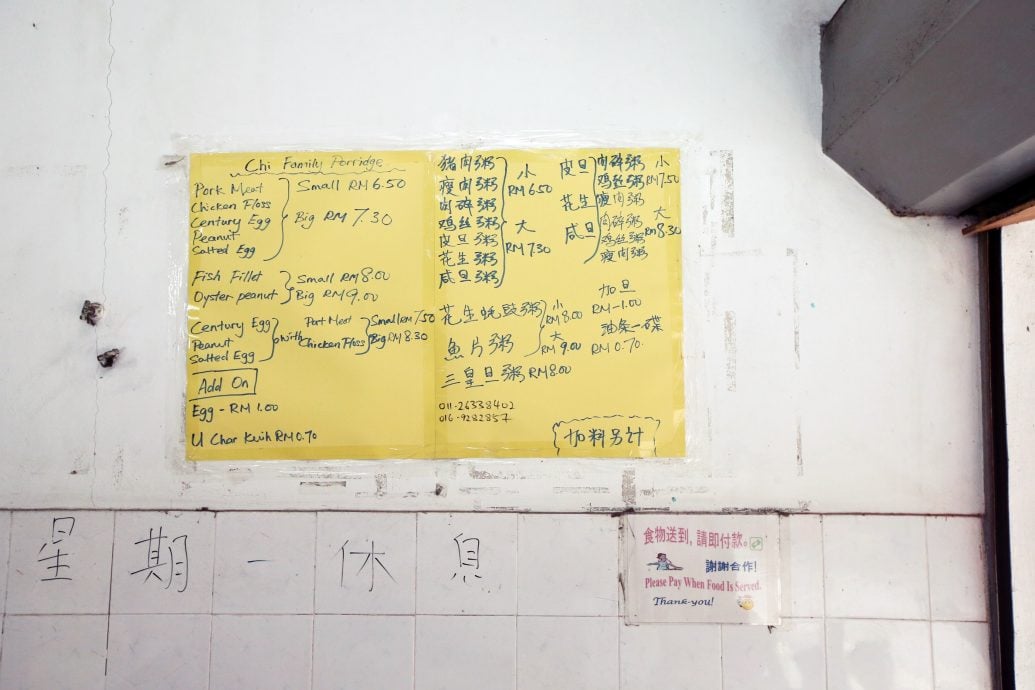 Chi Family Porridge
Pork Meat
Chicken Floss
Century Egg
Peanut
Salted Egg
Small RM 6.50
Big RM 7.30
Fish Fillet
Oyster peanut
Small RM 8.00
Big RM 9.00
Century Egg
Peanut
Salted Egg
with
Port Meat
Chicken Floss
Small RM 7.50
Big RM 8.30
Add On
Egg - RM 1.00
U Char Kuih RM 0.70
猪肉粥
瘦肉粥
肉碎粥
鸡丝粥
皮旦粥
花生粥
咸旦粥
小
RM 6.50
大
RM 7.30
皮旦
花生
咸旦
肉碎粥
鸡丝粥
瘦肉粥
肉碎粥
鸡丝粥
瘦肉粥
小
RM 7.50
大
RM 8.30
花生蚝豉粥
魚片粥
小
RM 8.00
大
RM 9.00
三皇旦粥 RM 8.00
加旦
RM-1.00
油条一碟
RM 0.70.
011-26338402
016-9282857
加料另计
星期一休息
食物送到, 請即付款。
謝謝合作!
Please Pay When Food Is Served.
Thank-you!